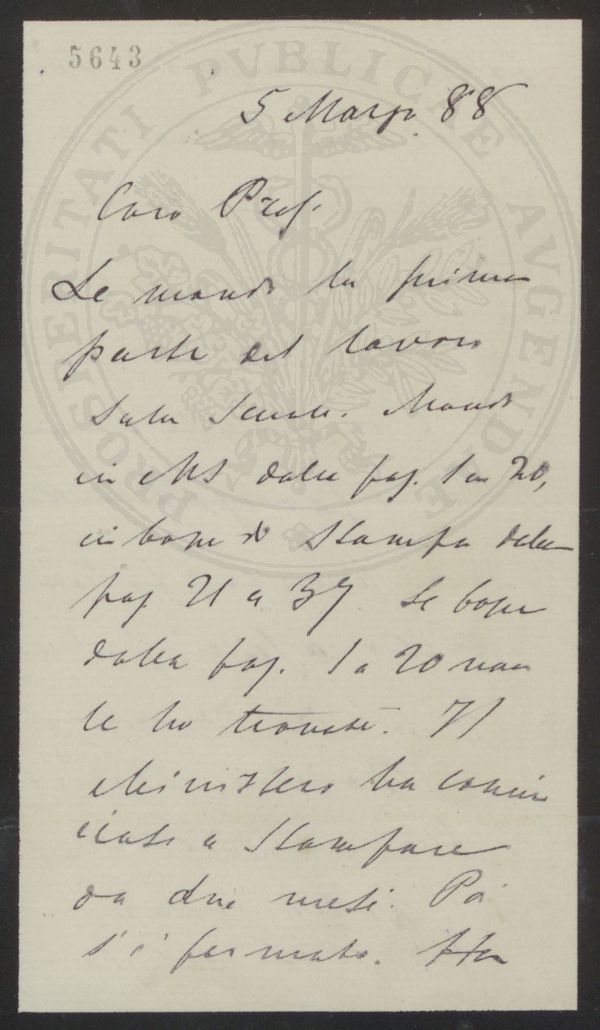 5643
PROSPERITATI PVBLICAE AVGENDAE
5 Marzo 88
Caro Prof.
Le mando la prima
parte del lavoro
sulle Scuole. Mando
in MS dalla pag. 1 a 20,
in bozze di stampa dalla
pag. 21 a 37 Le bozze
dalla pag. 1 a 20 non
le ho trovate. Il
Ministero ha comin
ciato a stampare
da due mesi. Poi
s'è fermato. Ha